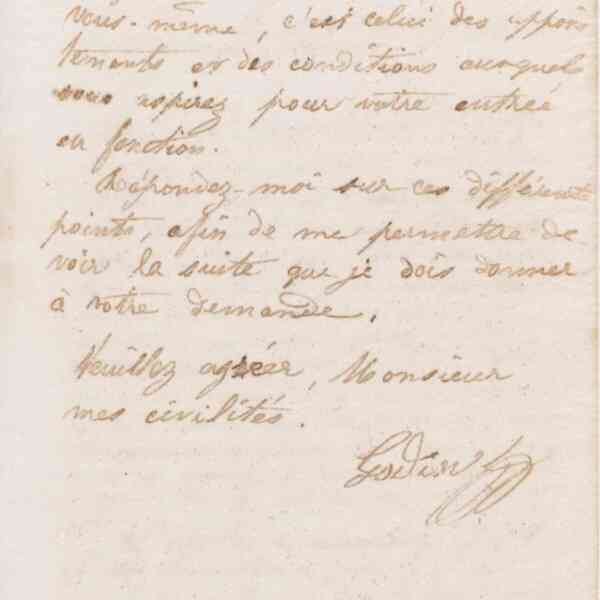 vous-même, c'est celui des appoin
tements et des conditions auxquels
vous aspirez pour votre entrée
en fonction.
Répondez-moi sur ces différents
points, afin de me permettre de
voir la suite que je dois donner
à votre demande.
Veuillez agréer, Monsieur
mes civilités.
Godin